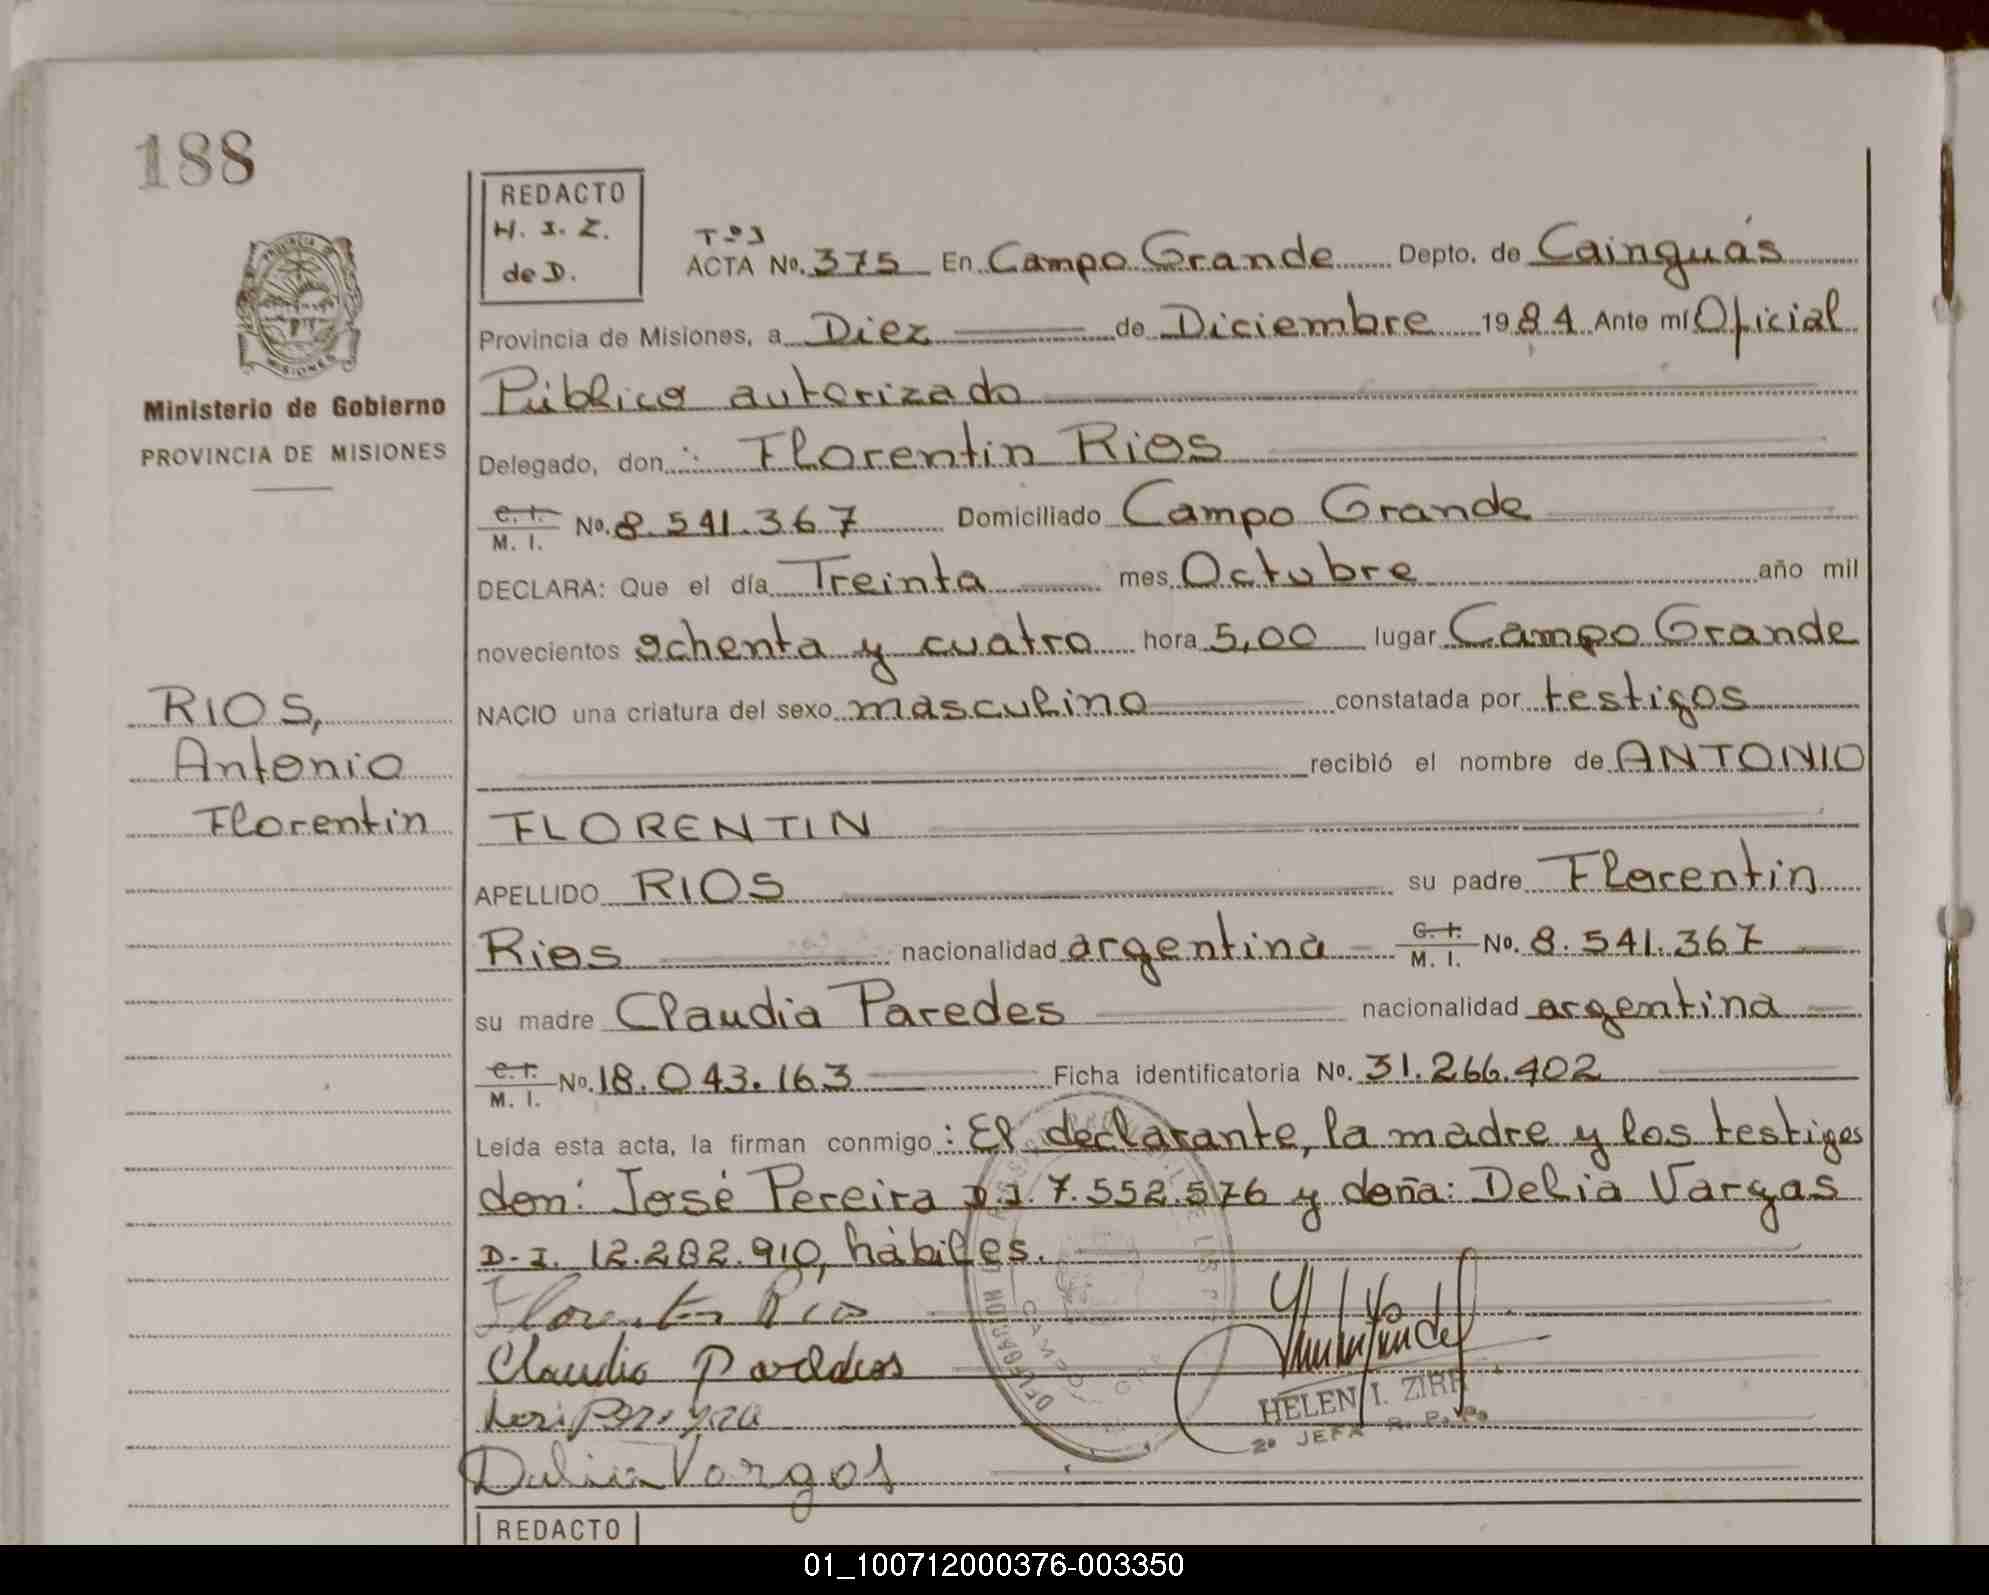 188
REDACTO
H. I. Z.
de D.
Tº I
ACTA No. 375 En Campo Grande Depto. de Cainguás
Provincia de Misiones, a Diez de Diciembre 1984 Ante mí Oficial
Público autorizado
Delegado, don: Florentin Rios
C. I. M. I. No. 8.541.367 Domiciliado Campo Grande
DECLARA: Que el día Treinta mes Octubre año mil
novecientos ochenta y cuatro hora 5,00 lugar Campo Grande
NACIO una criatura del sexo masculino constatada por testigos
recibió el nombre de ANTONIO
FLORENTIN
APELLIDO RIOS su padre Florentin
Rios nacionalidad argentina C. I. M. I. No. 8.541.367
su madre Claudia Paredes nacionalidad argentina
C. I. M. I. No. 18.043.163 Ficha identificatoria No. 31.266.402
Leída esta acta, la firman conmigo: El declarante, la madre y los testigos
don: José Pereira D.I. 7.552.576 y doña: Delia Vargas
D.I. 12.282.910, hábiles.
PROVINCIA DE MISIONES
Ministerio de Gobierno
PROVINCIA DE MISIONES
RIOS,
Antonio
Florentin
Florentin Rios
Claudia
Delia Vargas
HELEN I.
2º JEFA R. P.
REDACTO
01_100712000376-003350